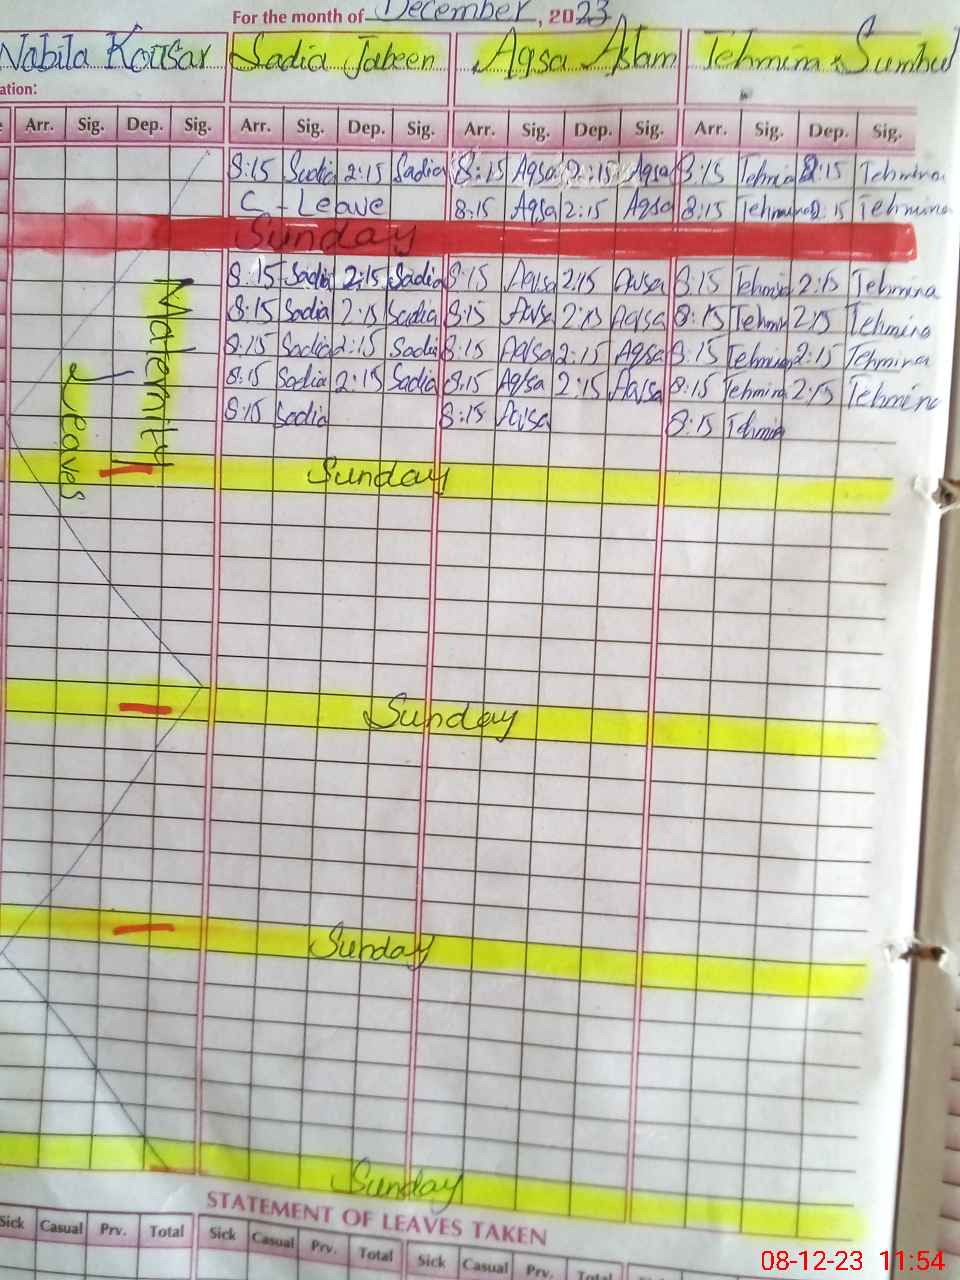 For the month of December, 2023
Nabila Kousar Sadia Jabeen Aqsa Aslam Tehmina Sumbul
ation:
Arr. Sig. Dep. Sig. Arr. Sig. Dep. Sig. Arr. Sig. Dep. Sig. Arr. Sig. Dep. Sig.
8:15 Sadia 2:15 Sadia 8:15 Aqsa 2:15 Aqsa 8:15 Tehmina 2:15 Tehmina
C - Leave 8:15 Aqsa 2:15 Aqsa 8:15 Tehmina 2:15 Tehmina
Sunday
8:15 Sadia 2:15 Sadia 8:15 Aqsa 2:15 Aqsa 8:15 Tehmina 2:15 Tehmina
8:15 Sadia 2:15 Sadia 8:15 Aqsa 2:15 Aqsa 8:15 Tehmina 2:15 Tehmina
8:15 Sadia 2:15 Sadia 8:15 Aqsa 2:15 Aqsa 8:15 Tehmina 2:15 Tehmina
8:15 Sadia 2:15 Sadia 8:15 Aqsa 2:15 Aqsa 8:15 Tehmina 2:15 Tehmina
8:15 Sadia 8:15 Aqsa 8:15 Tehmina
Maternity
Leaves
Sunday
Sunday
Sunday
Sunday
STATEMENT OF LEAVES TAKEN
Sick Casual Prv. Total Sick Casual Prv. Total Sick Casual Prv. Total
08-12-23 11:54